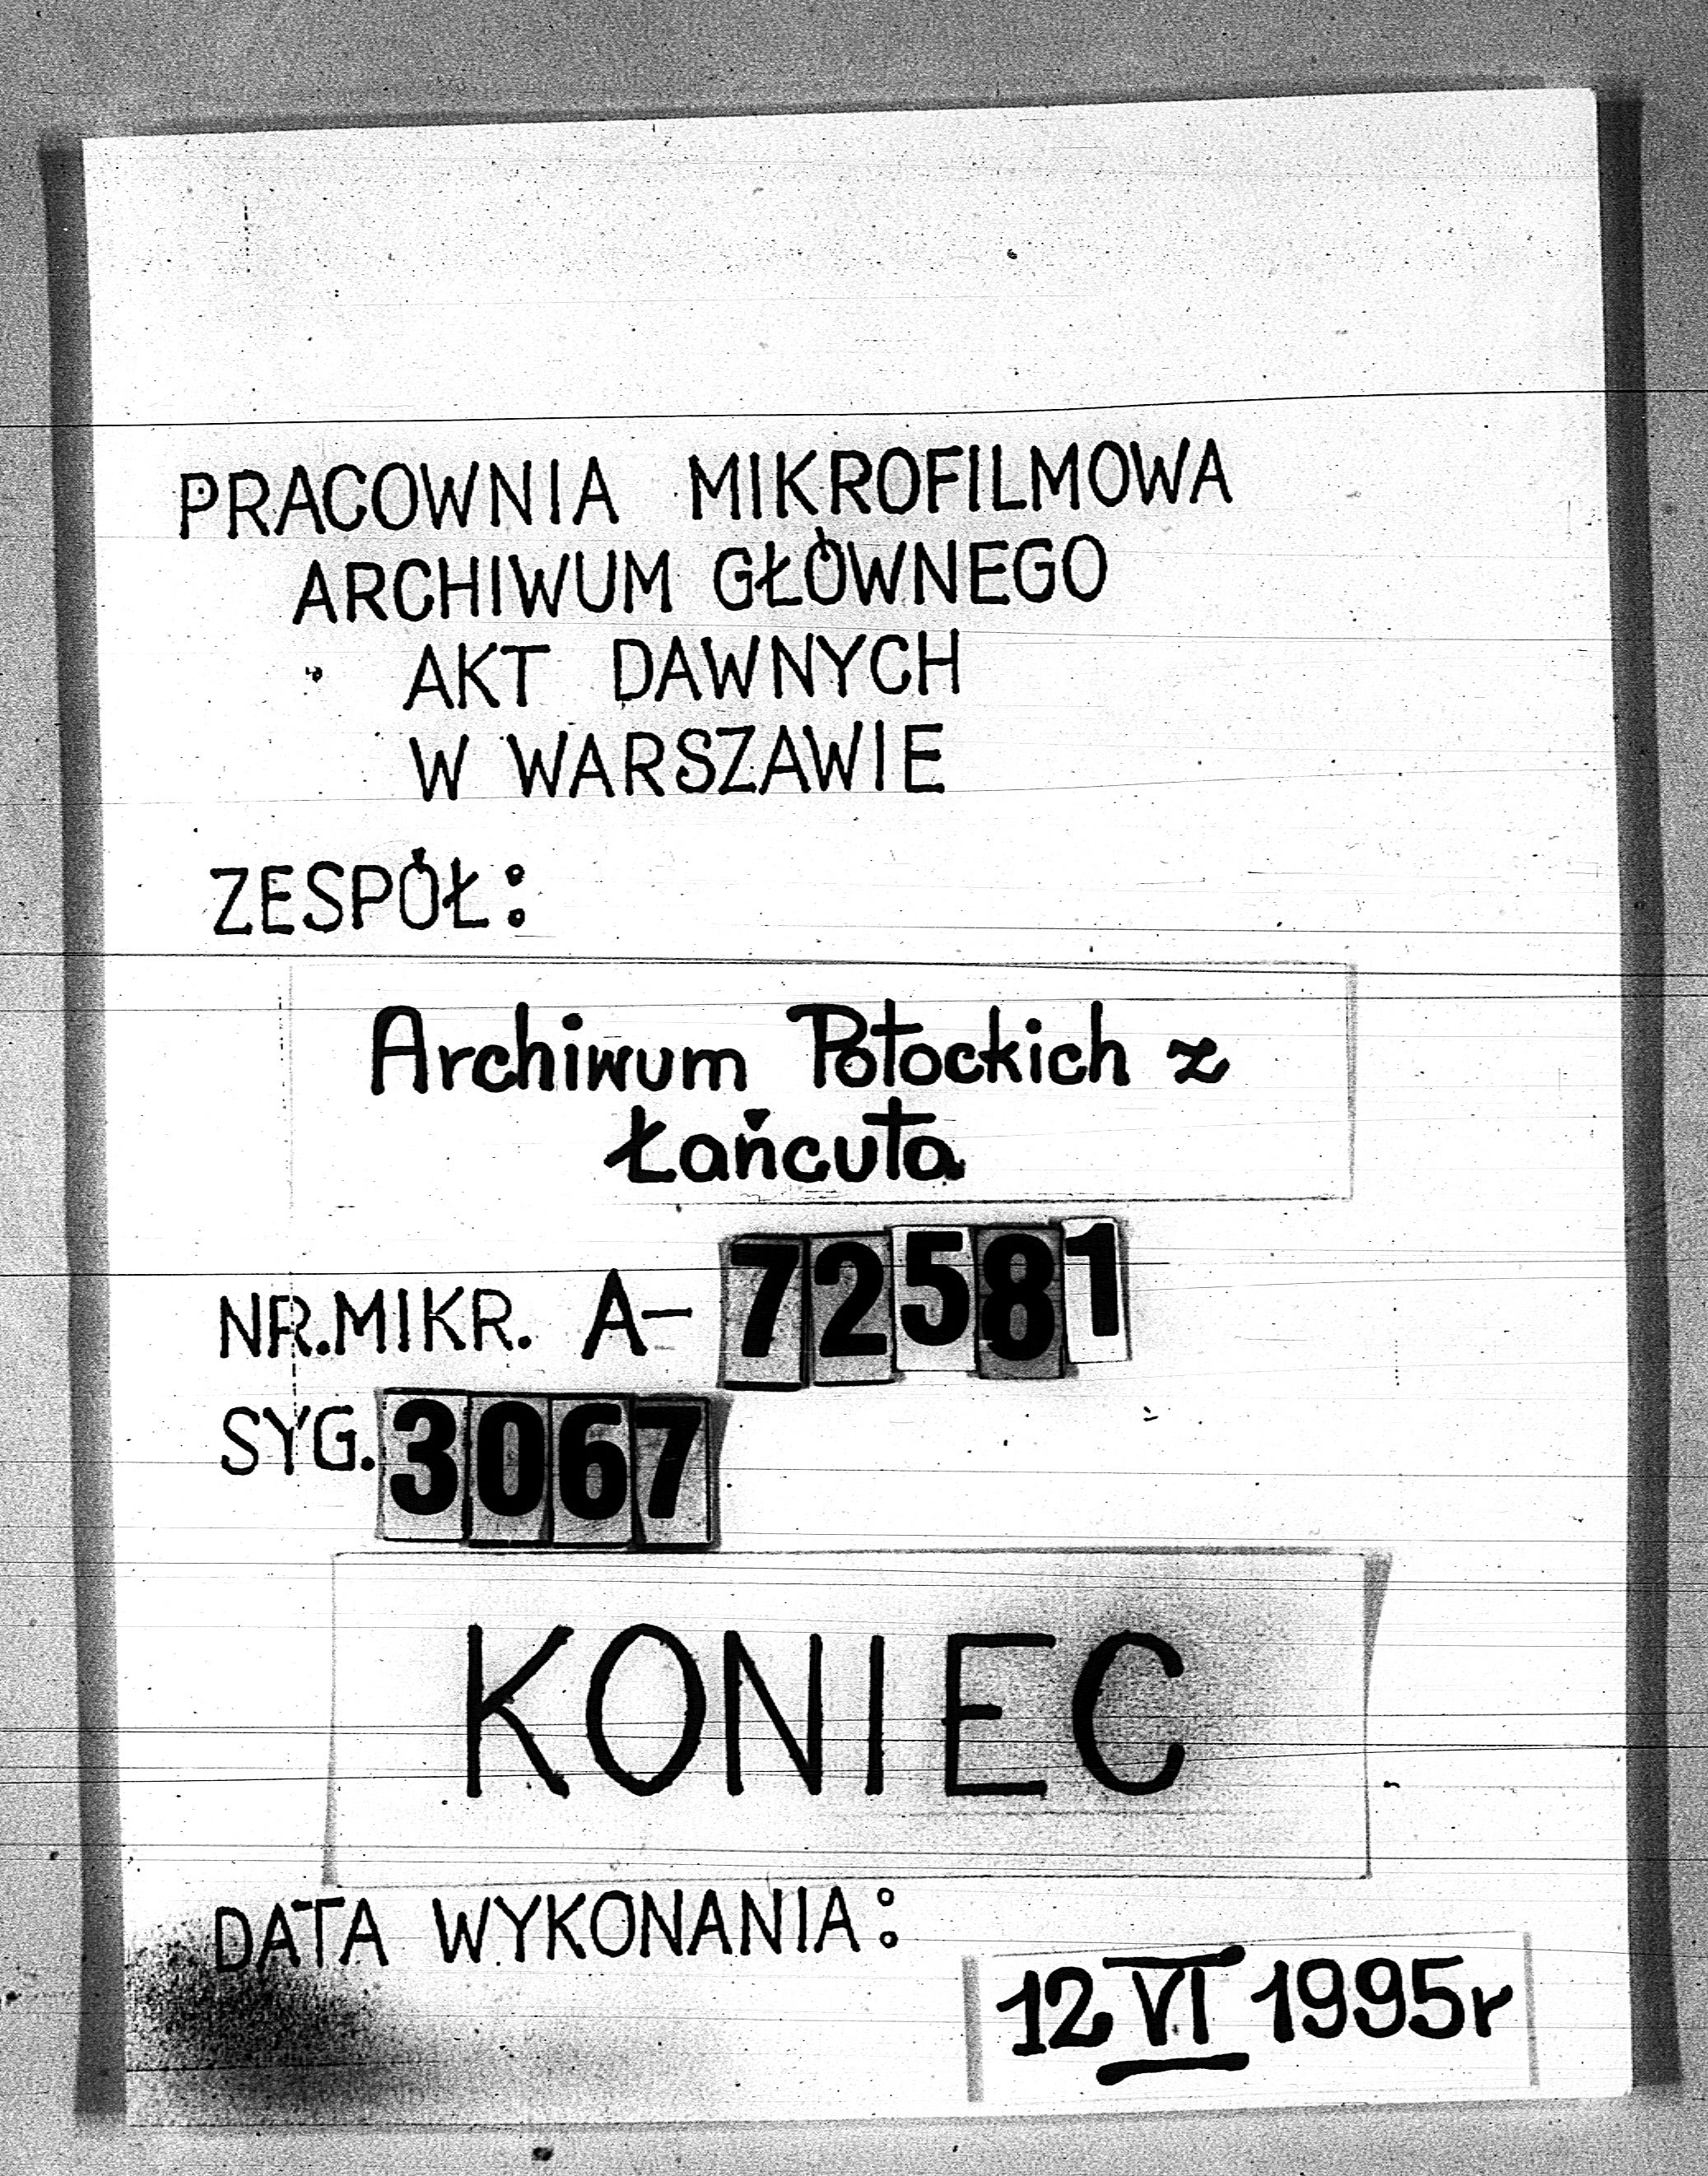 PRACOWNIA MIKROFILMOWA
ARCHIWUM GŁÓWNEGO
AKT DAWNYCH
W WARSZAWIE
ZESPÓŁ:
Archiwum Potockich z
Łańcuta
NR.MIKR. A- 72581
SYG. 3067
KONIEC
DATA WYKONANIA:
12 VI 1995r